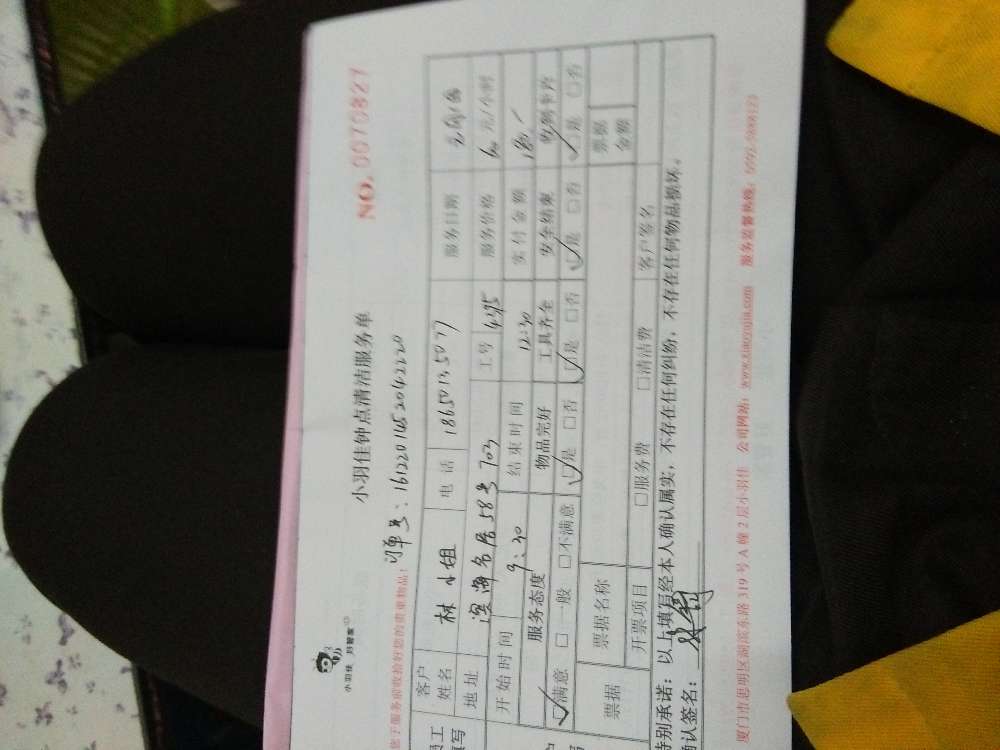 小羽佳 好管家
小羽佳钟点清洁服务单
NO.0070827
您于服务前收拾好您的贵重物品!
订单号:1612201452042220
员工填写
客户姓名 林小姐 电话 18650135077 服务日期
地址 澳海名居58号703 工号 4395 服务价格 60 元/小时
开始时间 9:30 结束时间 12:30 实付金额 180
服务态度 物品完好 工具齐全 安全结束
☑满意 □一般 □不满意 ☑是 □否 ☑是 □否 ☑是 □否 ☑是 □否
票据 票据名称 票据金额
开票项目 □服务费 □清洁费 客户签名
特别承诺:以上填写经本人确认属实,不存在任何纠纷,不存在任何物品损坏。
确认签名:
厦门市思明区湖滨东路319号A幢2层小羽佳 公司网站:www.xiaoyujia.com 服务监督热线: